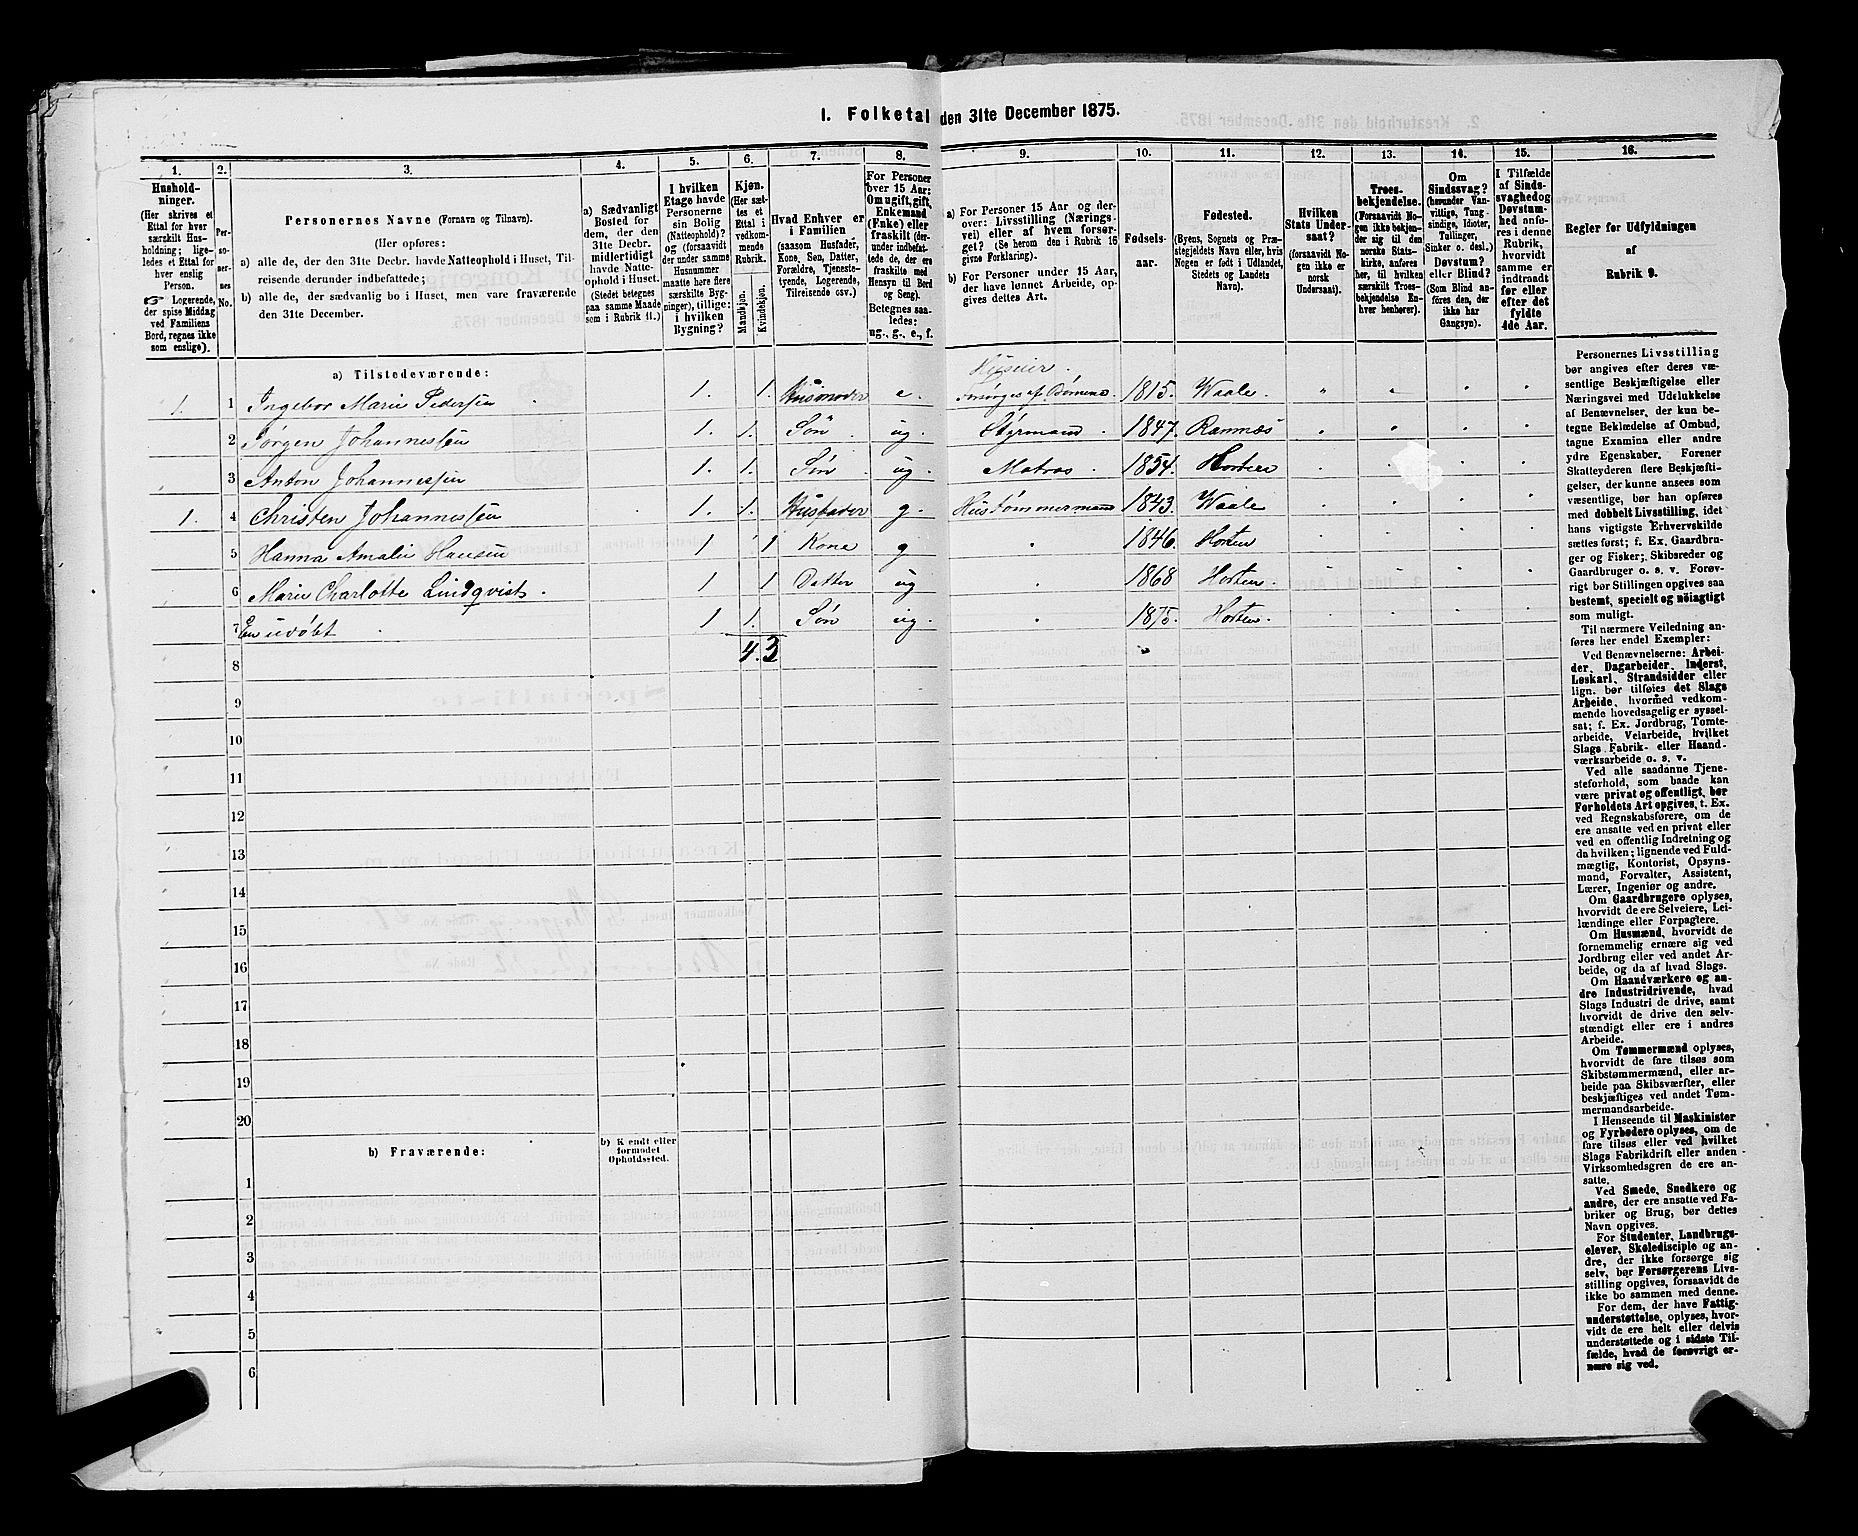 I. Folketal den 31te December 1875.
1. 2. 3. 4. 5. 6. 7. 8. 9. 10. 11. 12. 13. 14. 15. 16.
Hushold-
ninger.
(Her skrives et
Ettal for hver
særskilt Hus-
holdning; lige-
ledes et Ettal for
hver enslig
Person.
☞ Logerende,
der spise Middag
ved Familiens
Bord, regnes ikke
som enslige).
Per-
so-
ner-
nes
No.
Personernes Navne (Fornavn og Tilnavn).
(Her opføres:
a) alle de, der den 31te Decbr. havde Natteophold i Huset, Til-
reisende derunder indbefattede;
b) alle de, der sædvanlig bo i Huset, men vare fraværende
den 31te December.
a) Sædvanligt
Bosted for
dem, der den
31te Decbr.
midlertidigt
havde Natte-
ophold i Huset.
(Stedet betegnes
paa samme Maade
som i Rubrik 11.)
I hvilken
Etage havde
Personerne
sin Bolig
(Natteophold)?
og (forsaavidt
der under samme
Husnummer
maatte høre flere
særskilte Byg-
ninger), tillige:
i hvilken
Bygning?
Kjøn.
(Her sæt-
tes et
Ettal i
vedkom-
mende
Rubrik.
Mandkjøn.
Kvindekjøn.
Hvad Enhver er
i Familien
(saasom Husfader,
Kone, Søn, Datter,
Forældre, Tjeneste-
tyende, Logerende,
Tilreisende osv.)
For Personer
over 15 Aar:
Om ugift, gift,
Enkemand
(Enke) eller
Fraskilt (der-
under indbefat-
tede de, der ere
fraskilte med
Hensyn til Bord
og Seng).
Betegnes saa-
ledes:
ug., g., e., f.
a) For Personer 15 Aar og der-
over: Livsstilling (Nærings-
vei) eller af hvem forsør-
get? (Se herom den i Rubrik 16
givne Forklaring).
b) For Personer under 15 Aar,
der have lønnet Arbeide, op-
gives dettes Art.
Fødsels-
aar.
Fødested.
(Byens, Sognets og Præ-
stegjeldets Navn eller, hvis
Nogen er født i Udlandet,
Stedets og Landets
Navn).
Hvilken
Stats Under-
saat?
(forsaavidt No-
gen ikke er
norsk
Undersaat).
Troes-
bekjendelse.
(Forsaavidt No-
gen ikke bekjen-
der sig til den
norske Stats-
kirke, anføres
her, til hvilken
særskilt Troes-
bekjendelse En-
hver henhører).
Om
Sindssvag?
(herunder Van-
vittige, Tung-
sindige, Idioter,
Tullinger,
Sinker o. desl.)
Døvstum?
eller Blind?
(Som Blind an-
føres den, der
ikke har
Gangsyn).
I Tilfælde
af Sinds-
svaghed og
Døvstum-
hed onfø-
res i denne
Rubrik,
hvorvidt
samme er
indtraadt
før eller
efter det
fyldte
4de Aar.
Regler for Udfyldningen
af
Rubrik 9.
a) Tilstedeværende:
Huseier.
1. 1 Ingebor Marie Pedersen 1. 1. Husmoder e. Forsørges af Børnene 1815. Waale
2 Jørgen Johannessen 1. 1. Søn ug. Styrmand 1847. Ramnæs
3 Anton Johannessen 1. 1. Søn ug. Matros 1854. Horten
1. 4 Christen Johannessen 1. 1. Husfader g. Hustømmermand 1843. Waale
5 Hanna Amalie Hansen 1 1 Kone g 1846. Horten
6 Marie Charlotte Lindqvist. 1 1 Datter ug 1868 Horten.
7 En udøbt 1 1. Søn ug. 1875. Horten.
8 4. 3
9
10
11
12
13
14
15
16
17
18
19
20
b) Fraværende:
b) Kjendt eller
formodet
Opholdssted.
1
2
3
4
5
6
Personernes Livsstilling
bør angives efter deres væ-
sentlige Beskjæftigelse eller
Næringsvei med Udelukkelse
af Benævnelser, der kun be-
tegne Beklædelse af Ombud,
tagne Examina eller andre
ydre Egenskaber. Forener
Skatteyderen flere Beskjæfti-
gelser, der kunne ansees som
væsentlige, bør han opføres
med dobbelt Livsstilling, idet
hans vigtigste Erhvervskilde
sættes først; f. Ex. Gaardbru-
ger og Fisker; Skibsreder og
Gaardbruger o. s. v. Forøv-
rigt bør Stillingen opgives saa
bestemt, specielt og nøiagtigt
som muligt.
Til nærmere Veiledning an-
føres her endel Exempler:
Ved Benævnelserne: Arbei-
der, Dagarbeider, Inderst,
Løskarl, Strandsidder eller
lign. bør tilføies det Slags
Arbeide, hvormed vedkom-
mende hovedsagelig er syssel-
sat; f. Ex. Jordbrug, Tomte-
arbeide, Veiarbeide, hvilket
Slags Fabrik- eller Haand-
værksarbeide o. s. v.
Ved alle saadanne Tjene-
steforhold, som baade kan
være privat og offentligt, bør
Forholdets Art opgives, t. Ex.
ved Regnskabsførere, om de
ere ansatte ved en privat eller
ved en offentlig Indretning og
da hvilken; lignende ved Fuld-
mægtig, Kontorist, Opsyns-
mand, Forvalter, Assistent,
Lærer, Ingeniør og andre.
Om Gaardbrugere oplyses,
hvorvidt de ere Selveiere, Lei-
lændinge eller Forpagtere.
Om Husmænd, hvorvidt de
fornemmelig ernære sig ved
Jordbrug eller ved andet Ar-
beide, og da af hvad Slags.
Om Haandværkere og an-
dre Industridrivende, hvad
Slags Industri de drive, samt
hvorvidt de drive den selv-
stændigt eller ere i andres
Arbeide.
Om Tømmermænd oplyses,
hvorvidt de fare tilsøs som
Skibstømmermænd, eller ar-
beide paa Skibsværfter, eller
beskjæftiges ved andet Tøm-
mermandsarbeide.
I Henseende til Maskinister
og Fyrbødere oplyses, om de
fare tilsøs eller ved hvilket
Slags Fabrikdrift eller anden
Virksomhedsgren de ere an-
satte.
Ved Smede, Snedkere og
andre, der ere ansatte ved Fa-
briker og Brug, bør dettes
Navn opgives.
For Studenter, Landbrugs-
elever, Skoledisciple og an-
dre, der ikke forsørge sig
selv, bør Forsørgerens Livs-
stilling opgives, forsaavidt de
ikke bo sammen med denne.
For dem, der have Fattig-
understøttelse, oplyses, hvor-
vidt de ere helt eller delvis
understøttede og i sidste Til-
fælde, hvad de forøvrigt er-
nære sig ved.